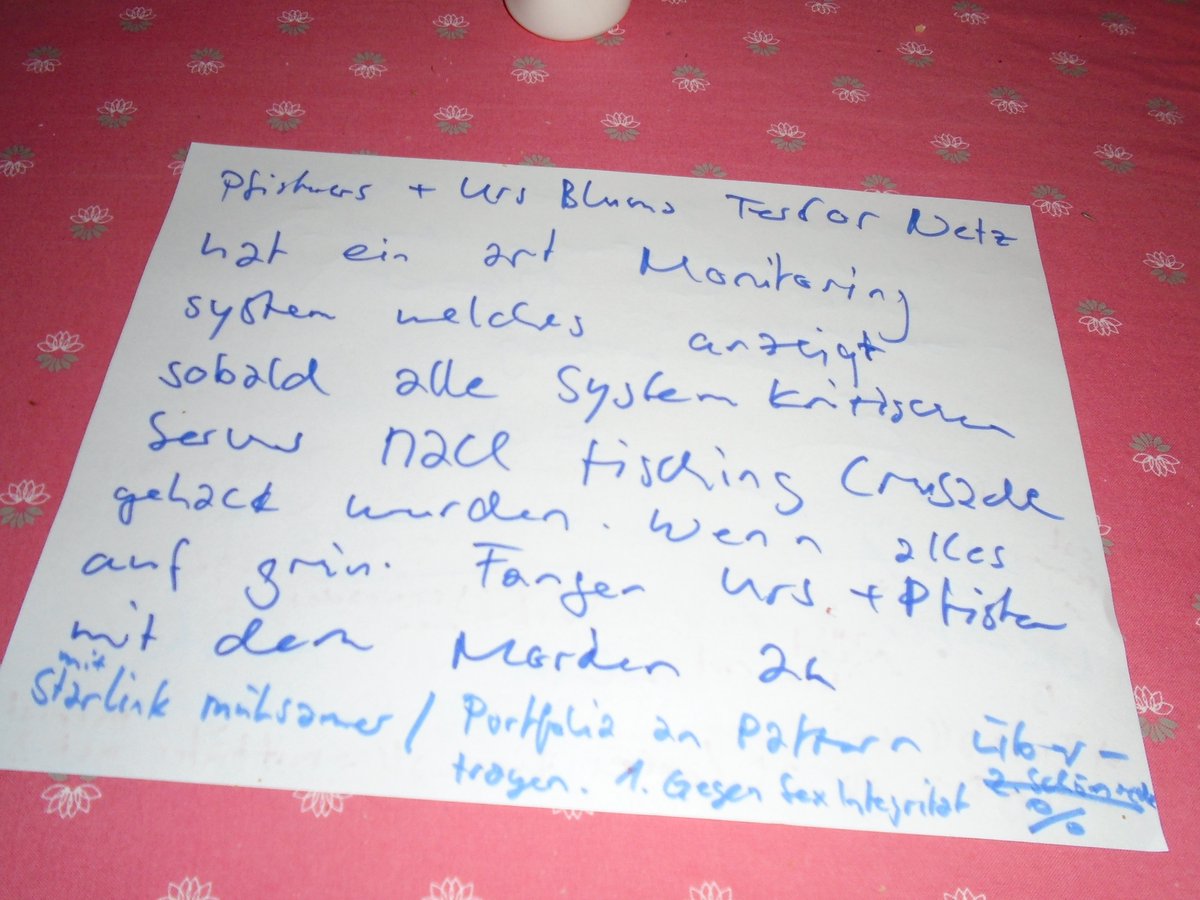 Pfisters + Urs Blums Terror Netz
hat ein art Monitoring
system welches anzeigt
sobald alle System kritischen
Servers nach fisching Crusade
gehackt wurden. Wenn alles
auf grün. Fangen Urs + Pfister
mit dem Morden an
mit
Starlink mühsamer / Portfolia an Pattern über-
tragen. 1. Gegen Sex Integrität
%